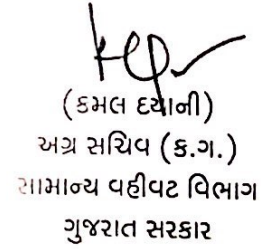 (કમલ દયાની)
અગ્ર સચિવ (ક.ગ.)
સામાન્ય વહીવટ વિભાગ
ગુજરાત સરકાર